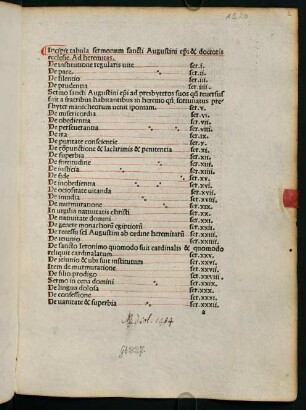 Incipit tabula sermonum sancti Augustini epi & doctoris
ecclesie. Ad heremitas.
De institutione regularis vite ser.i.
De pace. ser.ii.
De silentio ser.iii.
De prudentia ser.iiii.
Sermo sancti Augustini epi ad presbyteros suos
ser.v.
De misericordia ser.vi.
De obedientia ser.vii.
De perseuerantia ser.viii.
De ira ser.ix.
De puritate conscientie ser.x.
De cōpunctione & lachrimis & penitentia ser.xi.
De superbia ser.xii.
De fortitudine ser.xiii.
De iusticia ser.xiiii.
De fide ser.xv.
De inobedientia ser.xvi.
De ociositate uitanda ser.xvii.
De inuidia ser.xviii.
De murmuratione ser.xix.
In uigilia natiuitatis christi ser.xx.
De natiuitate domini ser.xxi.
De genere monachorū egiptiorū
De recessu sci Augustini ab ordine heremitarū
De ieiunio
De sancto Ieronimo quomodo fuit cardinalis & quomodo
reliquit cardinalatum
De ieiunio & ubi fuit institutum
Item de murmuratione
De filio prodigo
Sermo in cena domini
De lingua dolosa ser.xxx.
De confessione ser.xxxi.
De uanitate & superbia ser.xxxii.
a